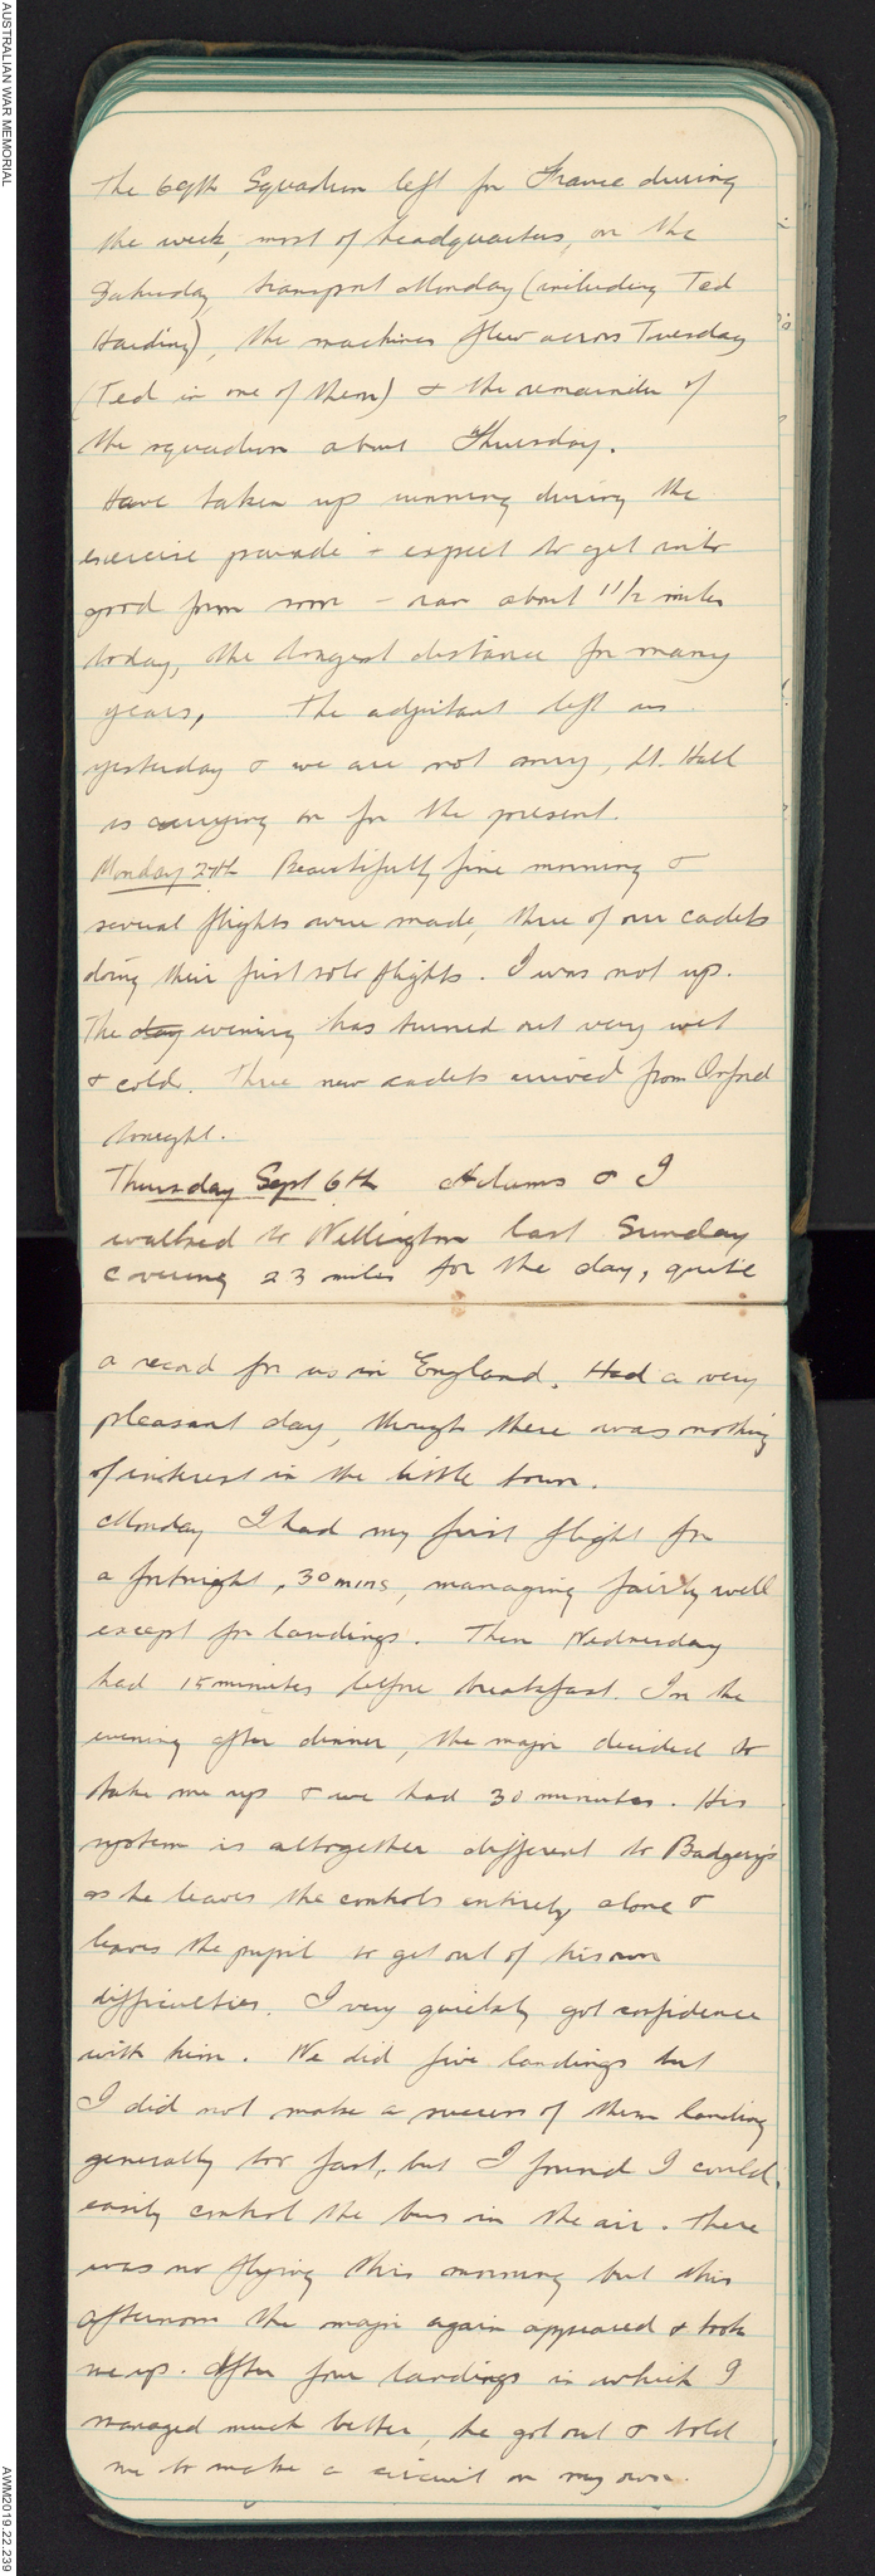 AUSTRALIAN WAR MEMORIAL
The 69th Squadron left for France during
the week, most of headquarters, on the
Saturday, transport Monday (including Ted
Harding), the machines flew across Tuesday
(Ted in one of them) & the remainder of
the squadron about Thursday.
Have taken up running during the
exercise parade & expect to get into
good form soon - ran about 1 1/2 miles
today, the longest distance for many
years, The adjutant left us
yesterday & we are not sorry, Lt. Hall
is carrying on for the present.
Monday 27th Beautifully fine morning &
several flights were made, three of our cadets
doing their first solo flights. I was not up.
The day evening has turned out very wet
& cold. Three new cadets arrived from Oxford
tonight.
Thursday Sept 6th Adams & I
walked to Wellington last Sunday
covering 23 miles for the day, quite
a record for us in England. Had a very
pleasant day, though there was nothing
of interest in the little town.
Monday I had my first flight for
a fortnight, 30 mins, managing fairly well
except for landings. Then Wednesday
had 15 minutes before breakfast. In the
evening after dinner, the major decided to
take me up & we had 30 minutes. His
system is altogether different to Badgery's
as he leaves the controls entirely alone &
leaves the pupil to get out of his own
difficulties. I very quickly got confidence
with him. We did five landings but
I did not make a success of them landing
generally too fast, but I found I could
easily control the bus in the air. There
was no flying this morning but this
afternoon the major again appeared & took
me up. After four landings in which I
managed much better, he got out & told
me to make a circuit on my own.
AWM2019.22.239